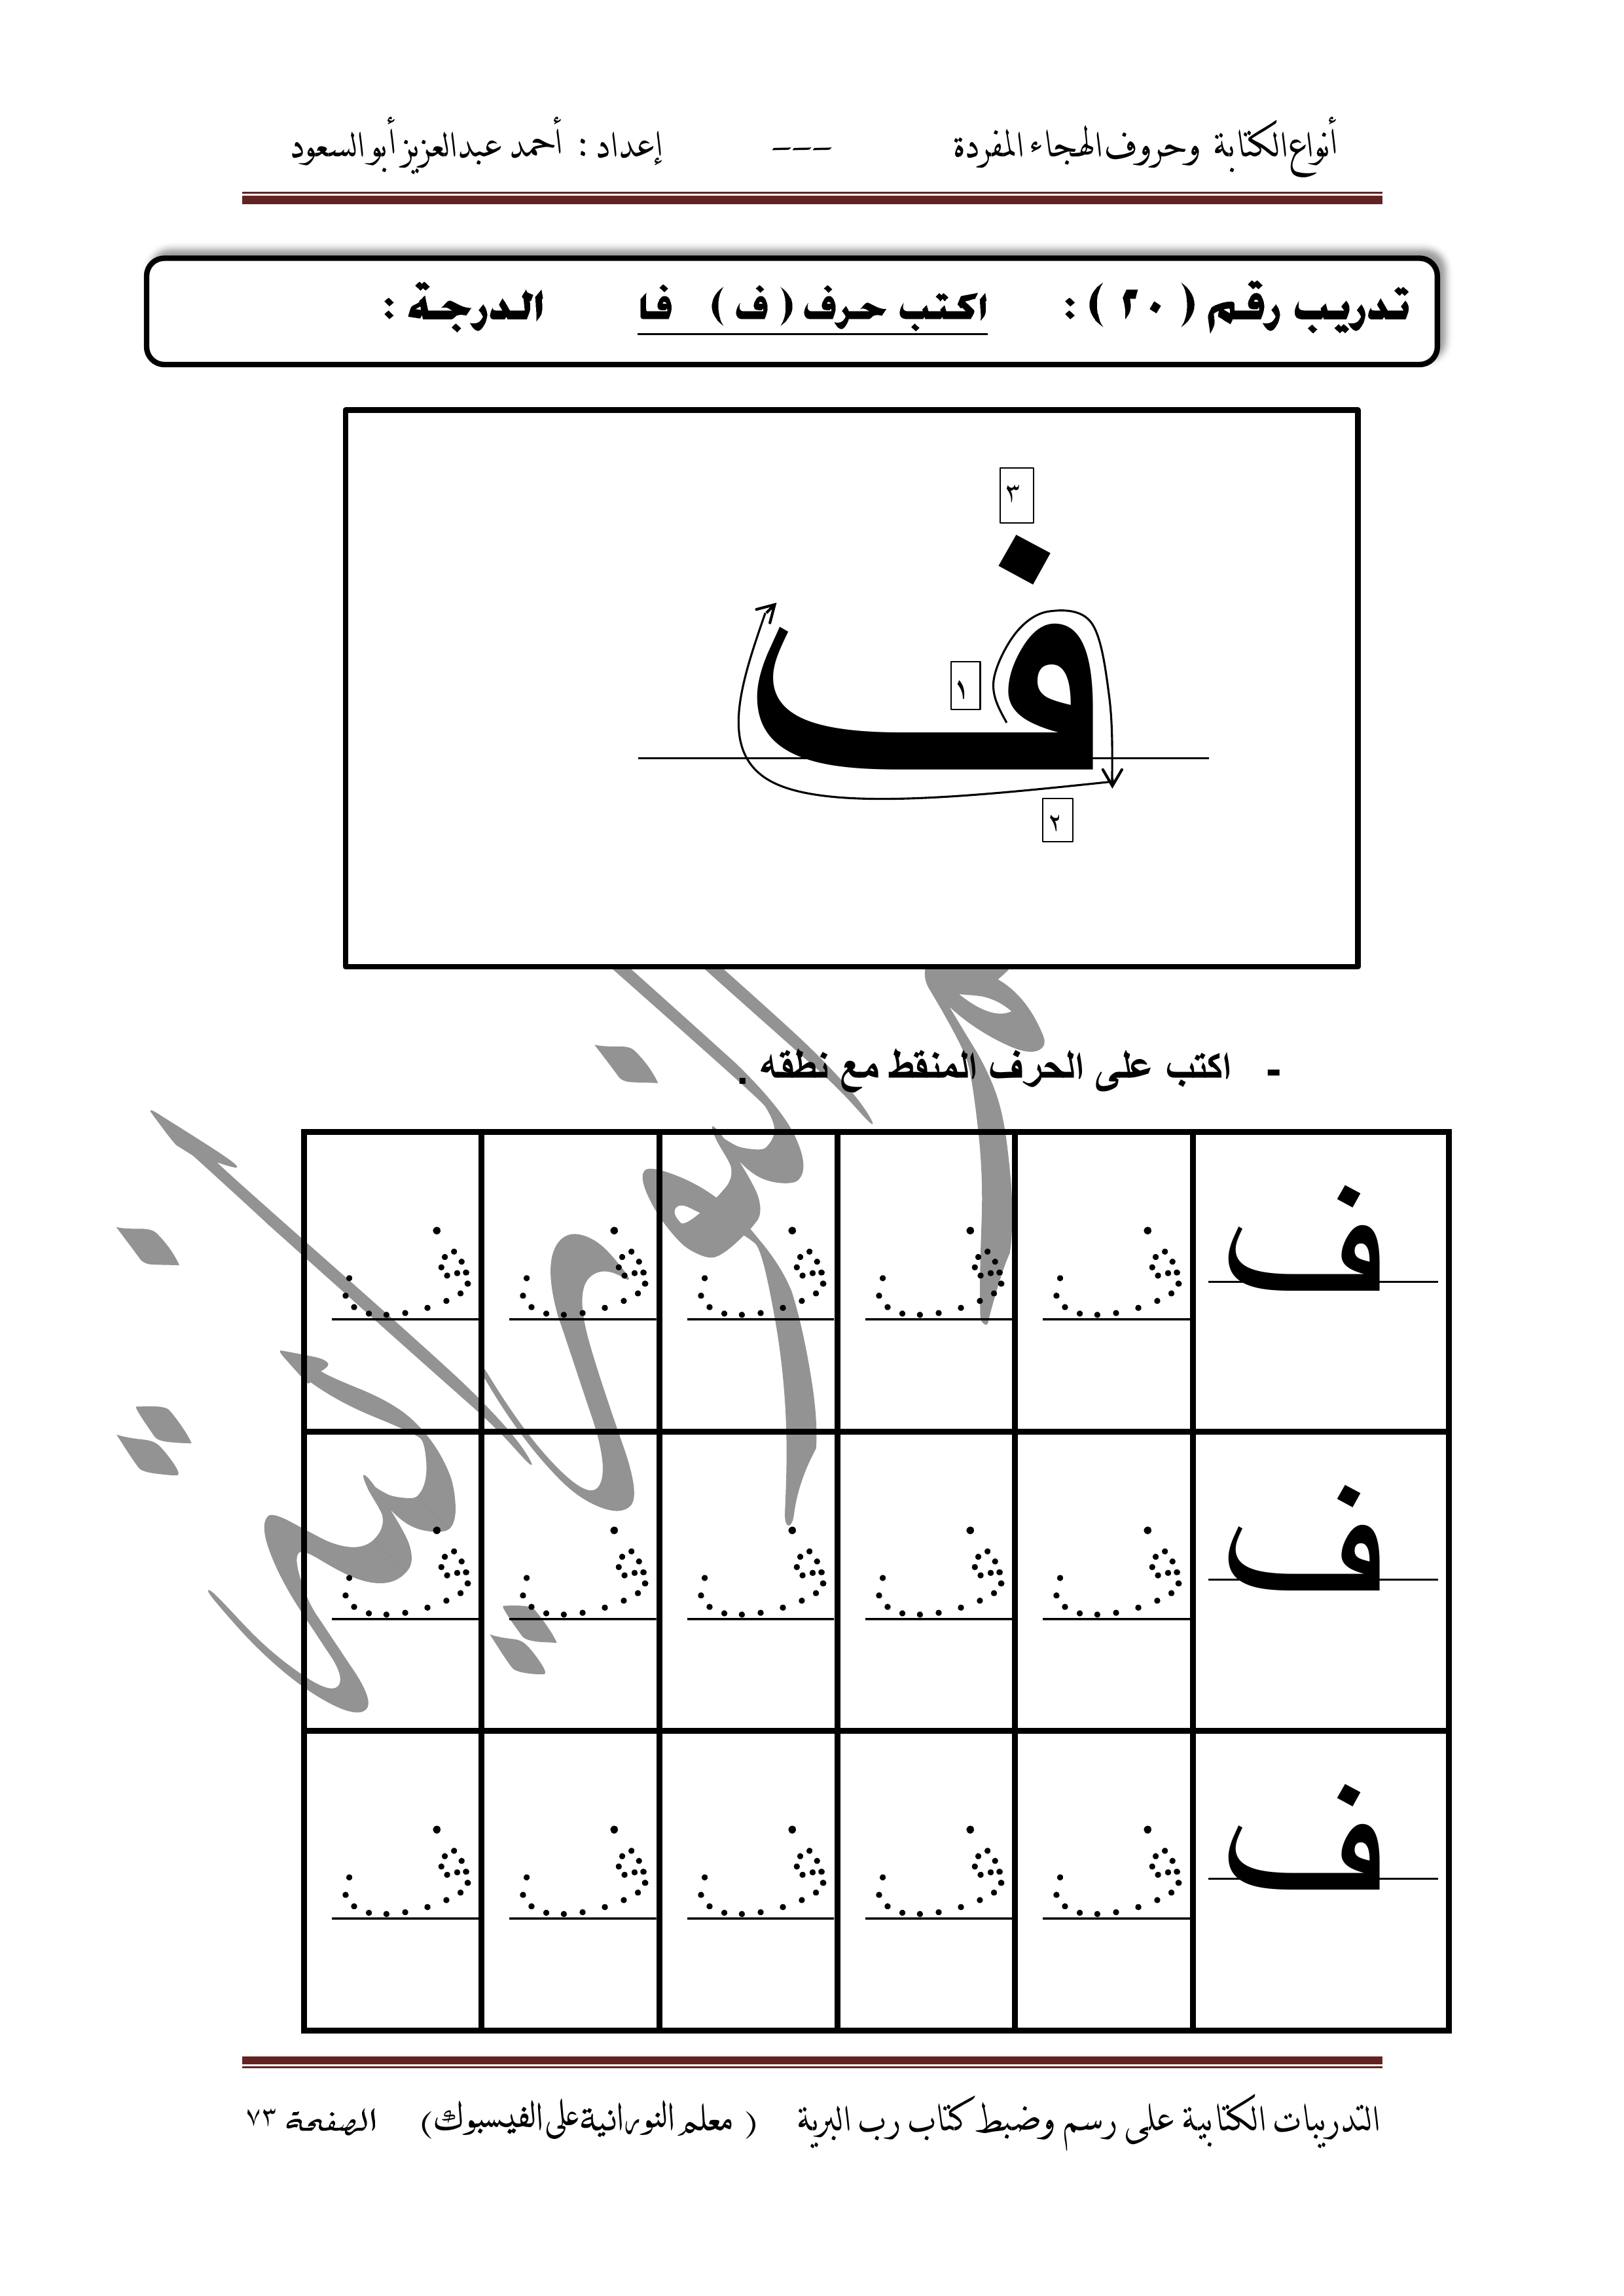 أنواع الكتابة وحروف الهجاء المفردة --- إعداد : أحمد عبدالعزيز أبو السعود
تدريب رقم ( ٢٠ ) : اكتب حرف ( ف ) فا الدرجة :
٣
ف
١
٢
- اكتب على الحرف المنقط مع نطقه .
ف ف ف ف ف ف
ف ف ف ف ف ف
ف ف ف ف ف ف
التدريبات الكتابية على رسم وضبط كتاب رب البرية ( معلم النورانية على الفيسبوك) الصفحة ٧٣